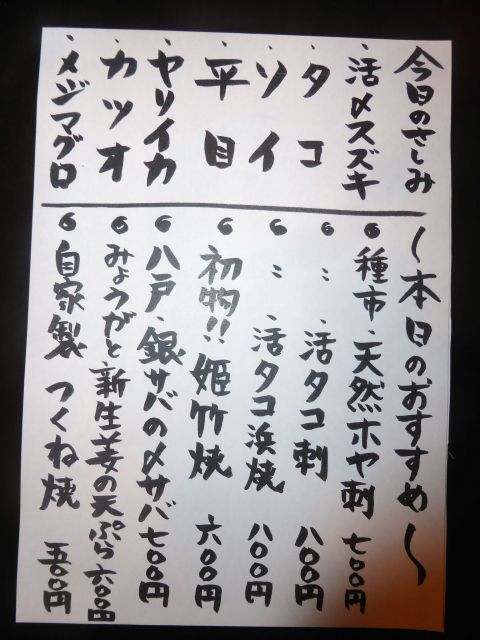 今日のさしみ
・活〆スズキ
・タコ
・ソイ
・平目
・ヤリイカ
・カツオ
・メジマグロ
〜本日のおすすめ〜
種市、天然ホヤ刺 七〇〇円
〃 活タコ刺 八〇〇円
〃 活タコ浜焼 八〇〇円
初物!!姫竹焼 六〇〇円
八戸、銀サバの〆サバ 七〇〇円
みょうがと新生姜の天ぷら 六〇〇円
自家製つくね焼 五〇〇円